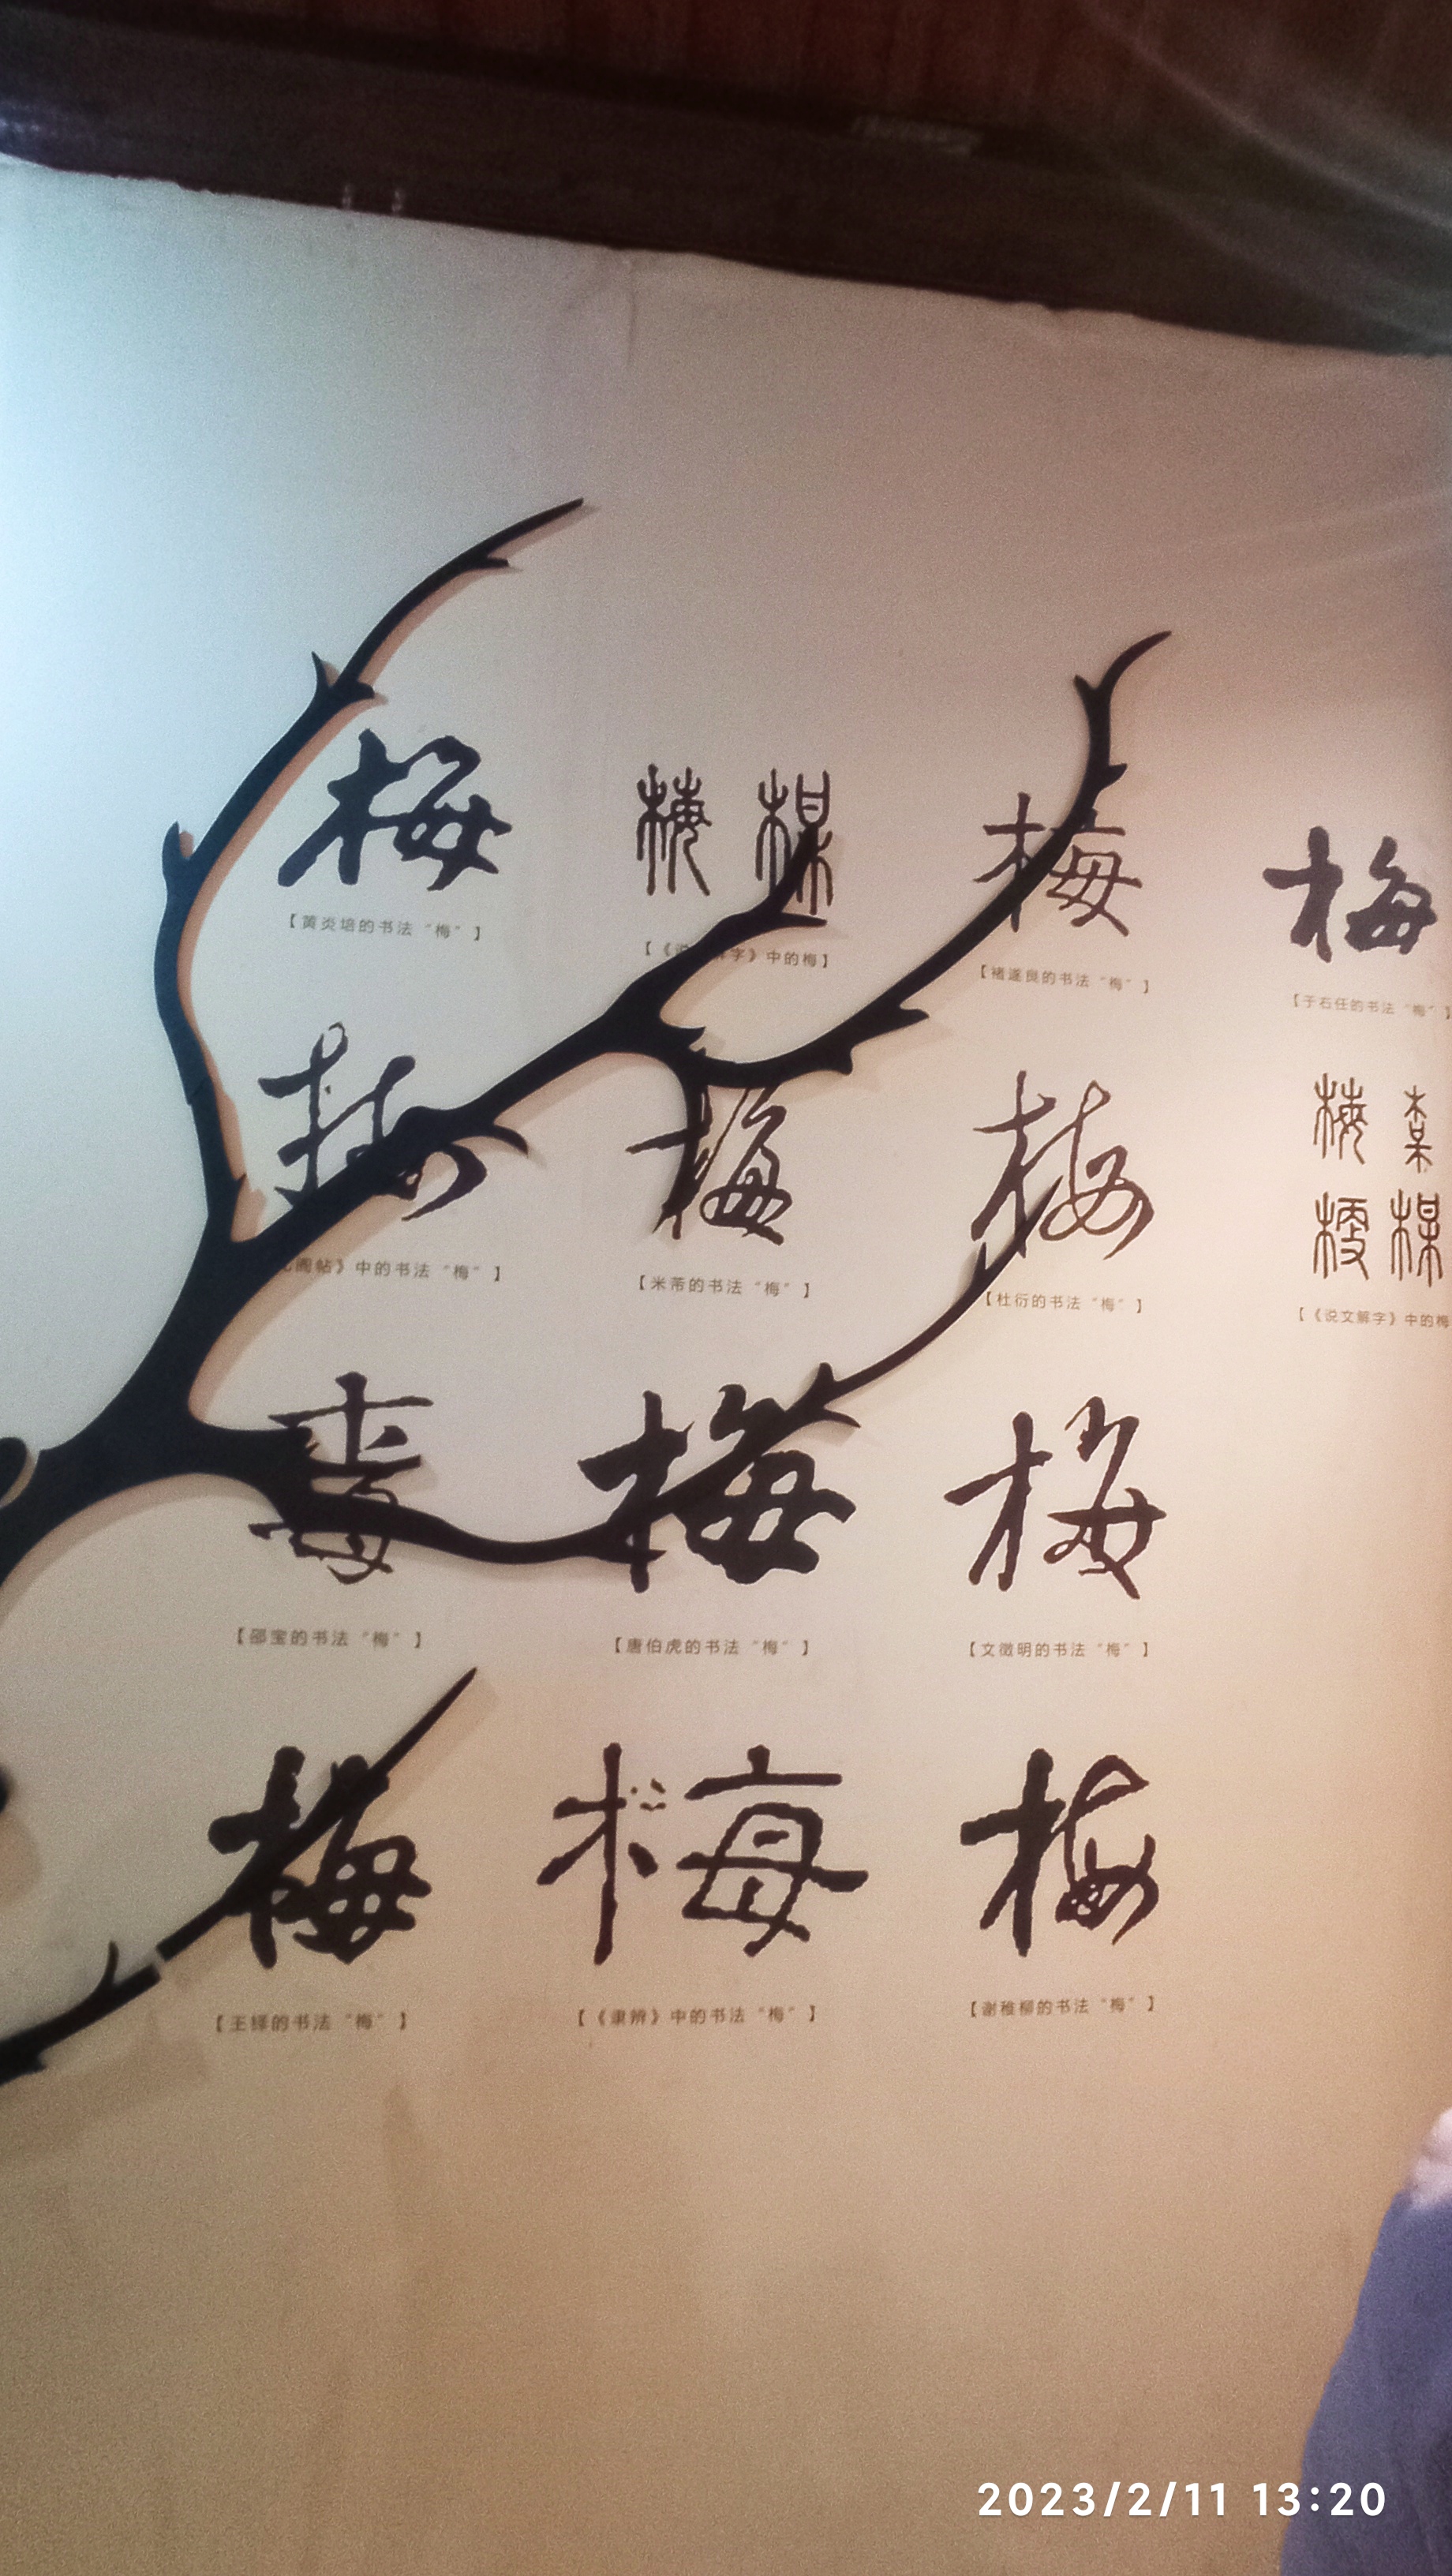 梅
梅 楳
梅
梅
【黄炎培的书法“梅”】
字》中的梅】
【褚遂良的书法“梅”】
【于右任的书法“梅”】
梅
梅
梅
梅
楳
【
阁帖》中的书法“梅”】
【米芾的书法“梅”】
【杜衍的书法“梅”】
【《说文解字》中的梅
梅
梅
【邵宝的书法“梅”】
【唐伯虎的书法“梅”】
【文徵明的书法“梅”】
梅
梅
梅
【王铎的书法“梅”】
【《隶辨》中的书法“梅”】
【谢稚柳的书法“梅”】
2023/2/11 13:20